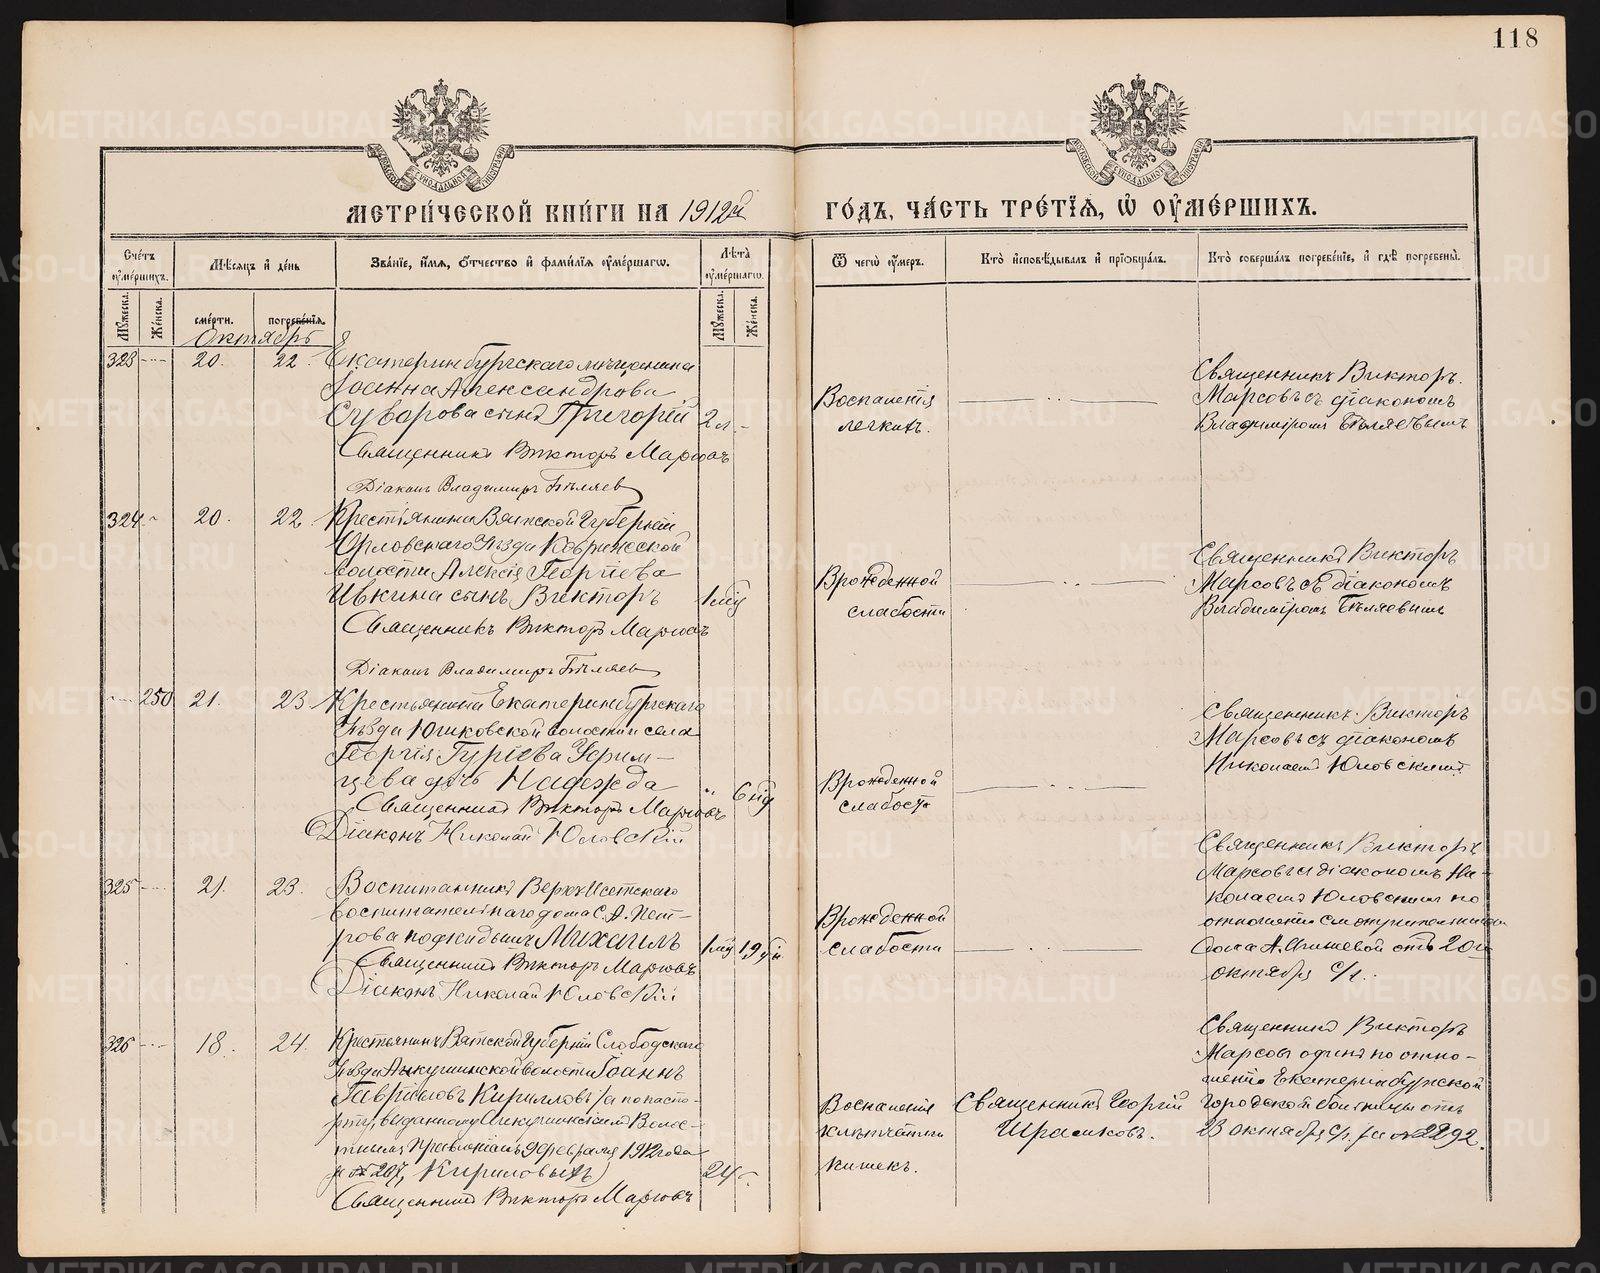 118
МЕТРИ́ЧЕСКОЙ КНИ́ГИ НА 1912й ГО́ДЪ, ЧА́СТЬ ТРЕ́ТІѦ, Ѽ ОУ҆МЕ́РШИХЪ.
Сче́тъ оу҆ме́ршихъ.
Мѣ́сяцъ и҆ де́нь
Зва́нїе, и҆́мѧ, ѻ҆́тчество и҆ фами́лїѧ оу҆ме́ршагѡ.
Лѣ́та оу҆ме́ршагѡ.
Ѿ чегѡ̀ оу҆́меръ.
Кто̀ и҆сповѣ́дывалъ и҆ прїѡбща́лъ.
Кто̀ соверша́лъ погребе́нїе, и҆ гдѣ̀ погребены̀.
Мꙋ́жеска.
Же́нска.
сме́рти.
погребе́нїѧ.
Мꙋ́жеска.
Же́нска.
Октябрь
323 20. 22.
Екатеринбургскаго мѣщанина
Іоанна Александрова
Суворова сынъ Григорій 2 л.
Священникъ Викторъ Марсовъ
Діаконъ Владимиръ Бѣляев
Воспаленія
легкихъ.
Священникъ Викторъ
Марсовъ съ діакономъ
Владиміромъ Бѣляевымъ
324 20. 22.
Крестьянина Вятской Губерніи
Орловскаго Уѣзда
волости Алексія Георгіева
Ивкина сынъ Викторъ 1 мц
Священникъ Викторъ Марсовъ
Діаконъ Владимиръ Бѣляев
Врожденной
слабости
Священникъ Викторъ
Марсовъ съ діакономъ
Владиміромъ Бѣляевымъ
250 21. 23
Крестьянина Екатеринбургскаго
Уѣзда Юшковской волости и села
Георгія Гуріева Уфим-
цева дочь Надежда 6 нд
Священникъ Викторъ Марсовъ
Діаконъ Николай Юловскій
Врожденной
слабости
Священникъ Викторъ
Марсовъ съ діакономъ
Николаемъ Юловскимъ
325 21. 23.
Воспитанникъ Верхъ Исетскаго
воспитательнаго дома С. А. Пет-
рова подкидышъ Михаилъ 1 мц 19 дн.
Священникъ Викторъ Марсовъ
Діаконъ Николай Юловскій
Врожденной
слабости
Священникъ Викторъ
Марсовъ съ діакономъ Ни-
колаемъ Юловскимъ по
отношенію смотрительницы
дома А. отъ 20го
октября с/г.
326 18. 24.
Крестьянинъ Вятской Губерніи Слободскаго
Уѣзда волости Іоаннъ
Гавріиловъ Кирилловъ (а по паспо-
рту, выданному Волос-
тнымъ Правленіемъ 9 февраля 1912 года
за № 207, Кириловыхъ) 24 г.
Священникъ Викторъ Марсовъ
Воспаленія
клѣтчатки
кишекъ.
Священникъ Георгій
Священникъ Викторъ
Марсовъ одинъ по отно-
шенію Екатеринбургской
Городской больницы отъ
23 октября с/г. за № 2292.